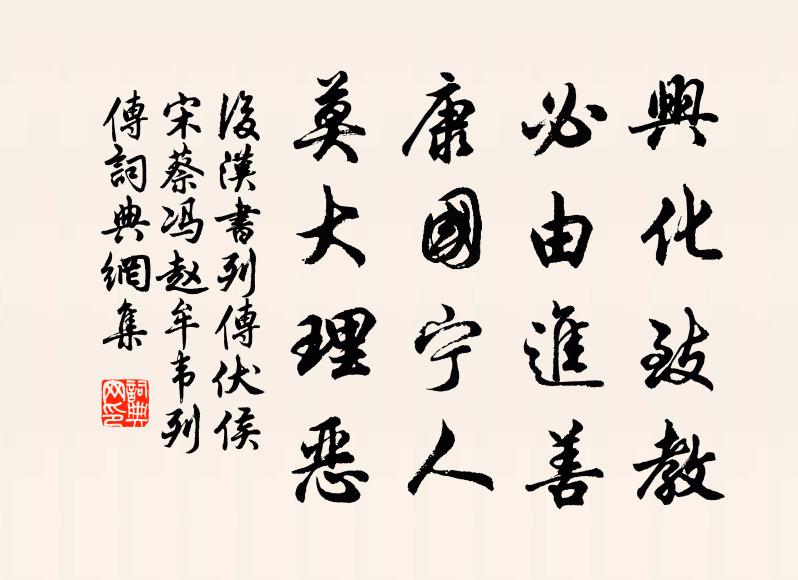 興化致教
必由進善
康國宁人
莫大理恶
後漢書列傳伏侯
宋蔡冯赵牟韦列
傳詞典網集
詞典
网印